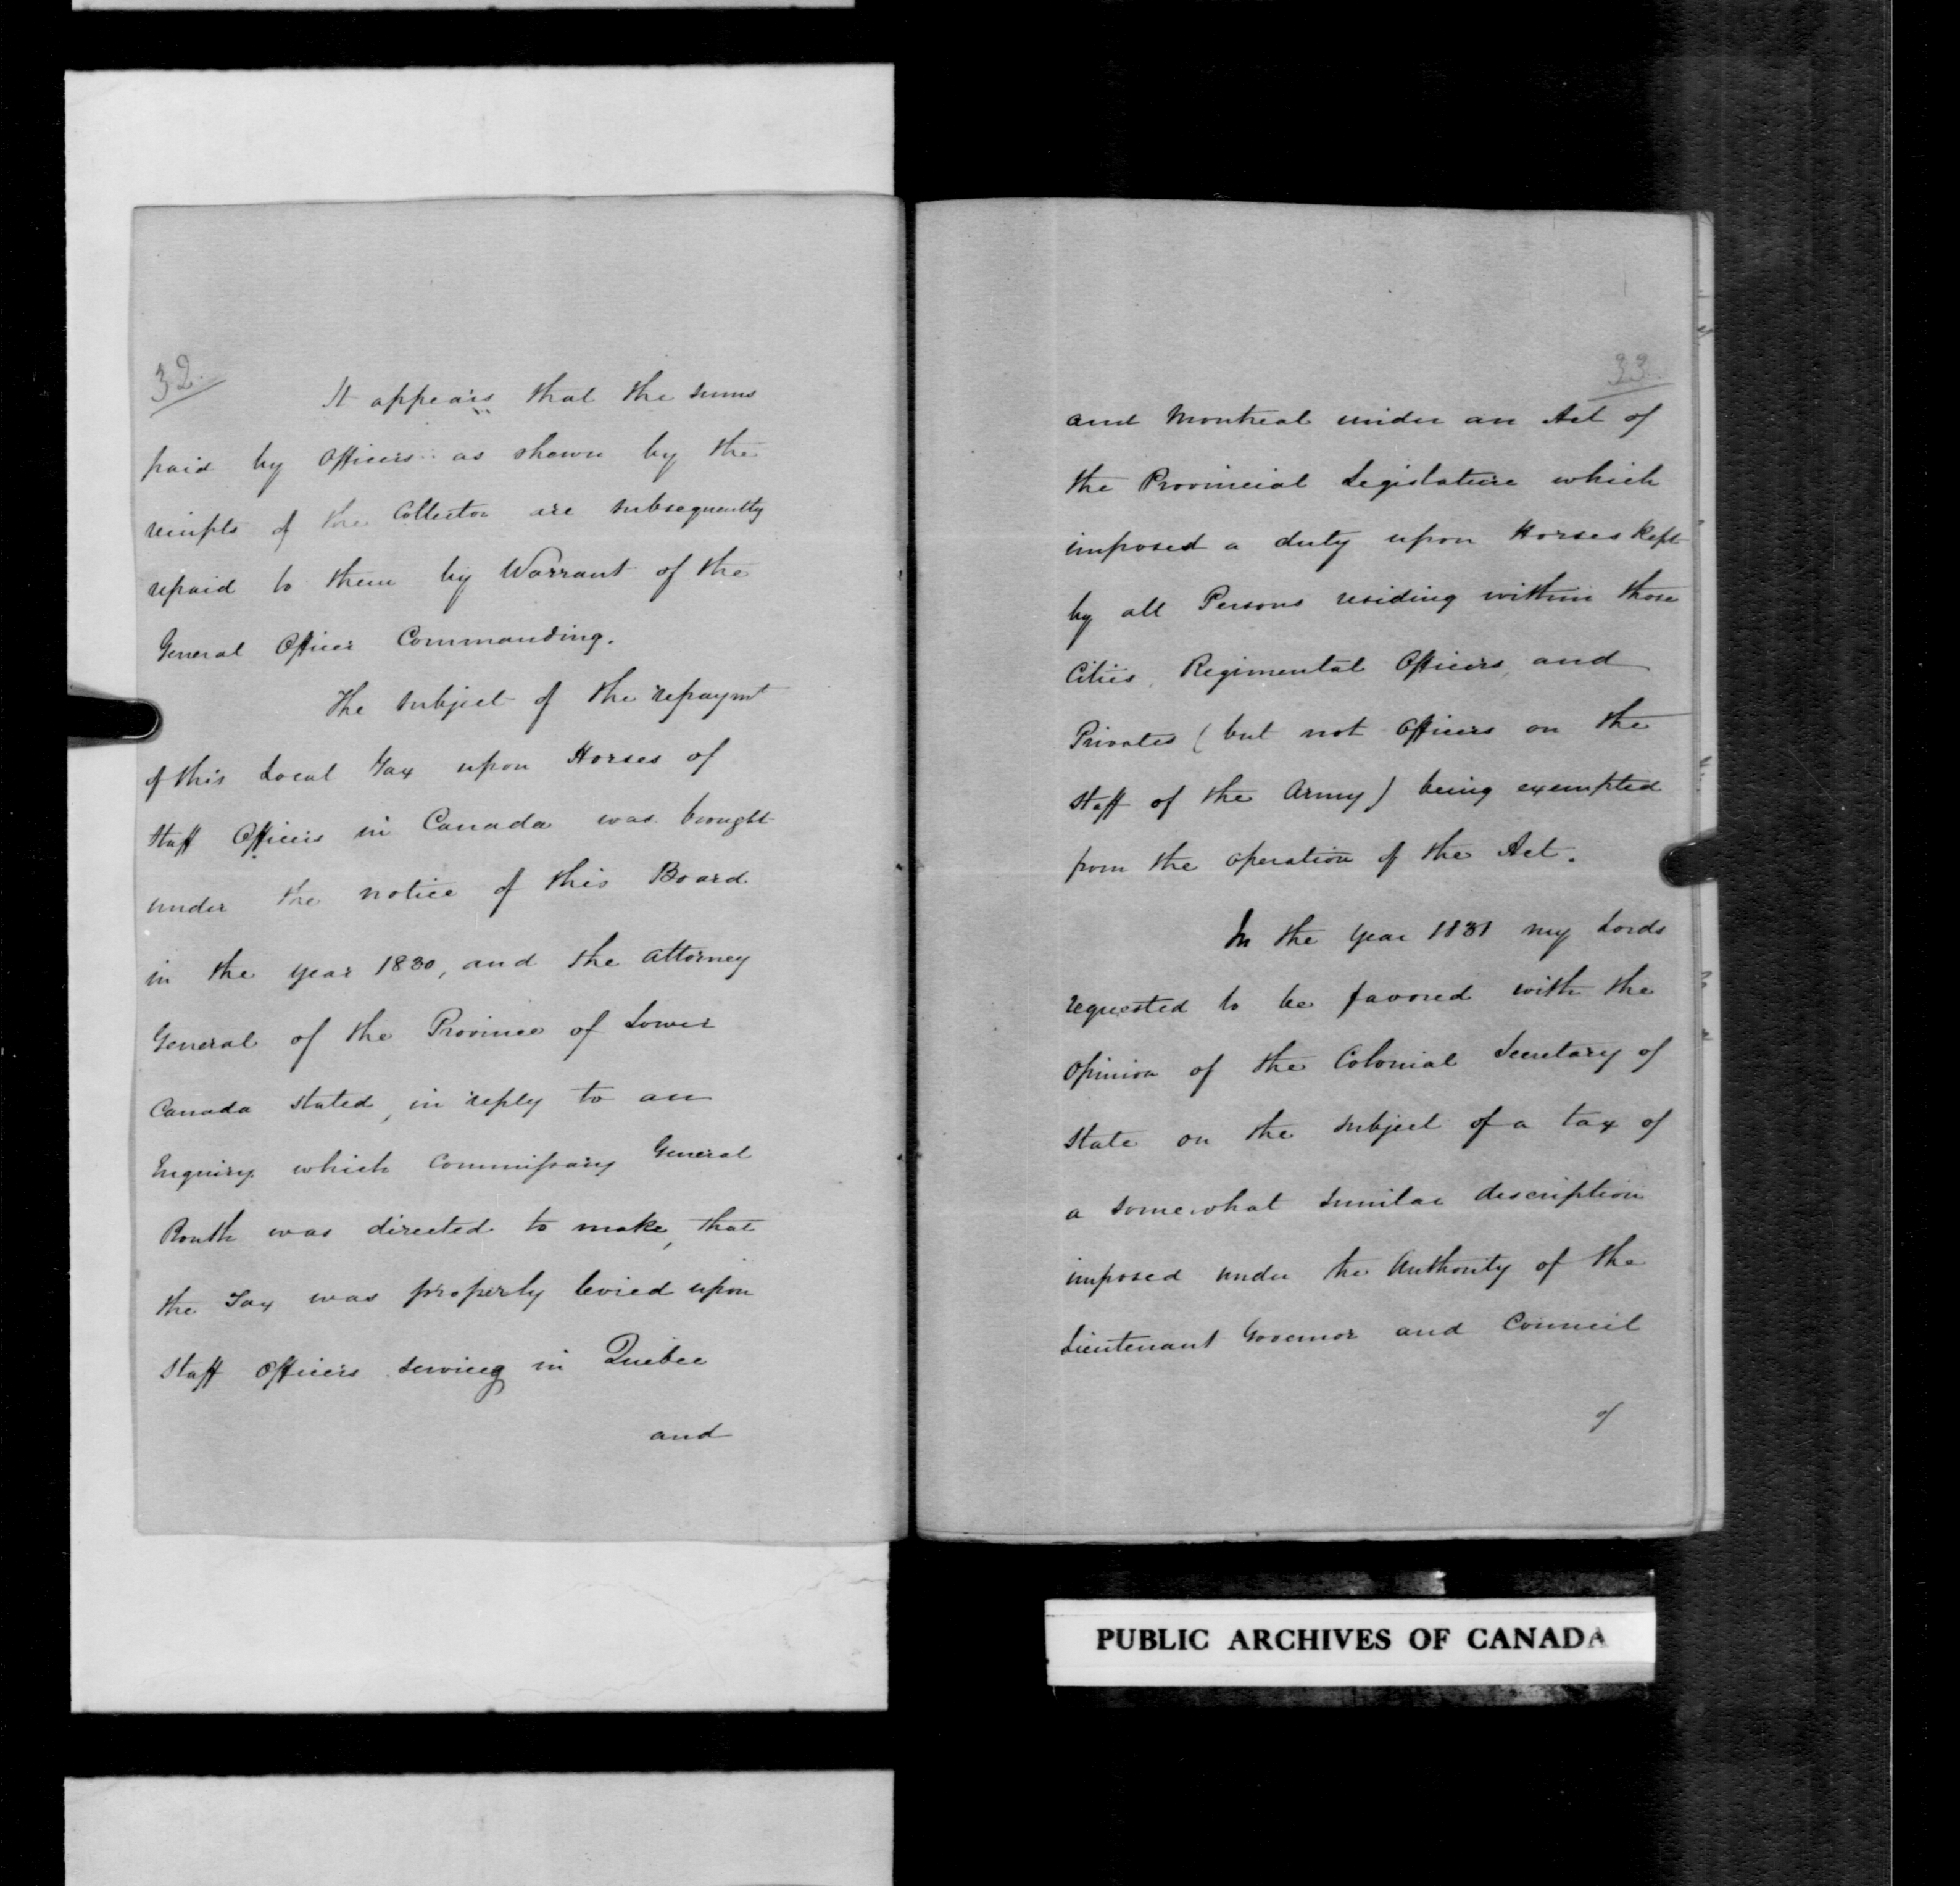 32.
It appears that the sums
paid by Officers as shewn by the
receipts of the Collector are subsequently
repaid to them by Warrant of the
General Officer Commanding.
The subject of the repaymt
of this Local Tax upon Horses of
Staff Officers in Canada was brought
under the notice of this Board
in the year 1830, and the Attorney
General of the Province of Lower
Canada stated, in reply to an
Enquiry which Commissary General
Routh was directed to make, that
the Tax was properly levied upon
Staff Officers serving in Quebec
and
33.
and Montreal under an Act of
the Provincial Legislature which
imposed a duty upon Horses kept
by all Persons residing within those
Cities, Regimental Officers, and
Privates (but not Officers on the
Staff of the Army) being exempted
from the operation of the Act.
In the year 1831 my Lords
requested to be favored with the
opinion of the Colonial Secretary of
State on the subject of a tax of
a somewhat similar description
imposed under the Authority of the
Lieutenant Governor and Council
of
PUBLIC ARCHIVES OF CANADA